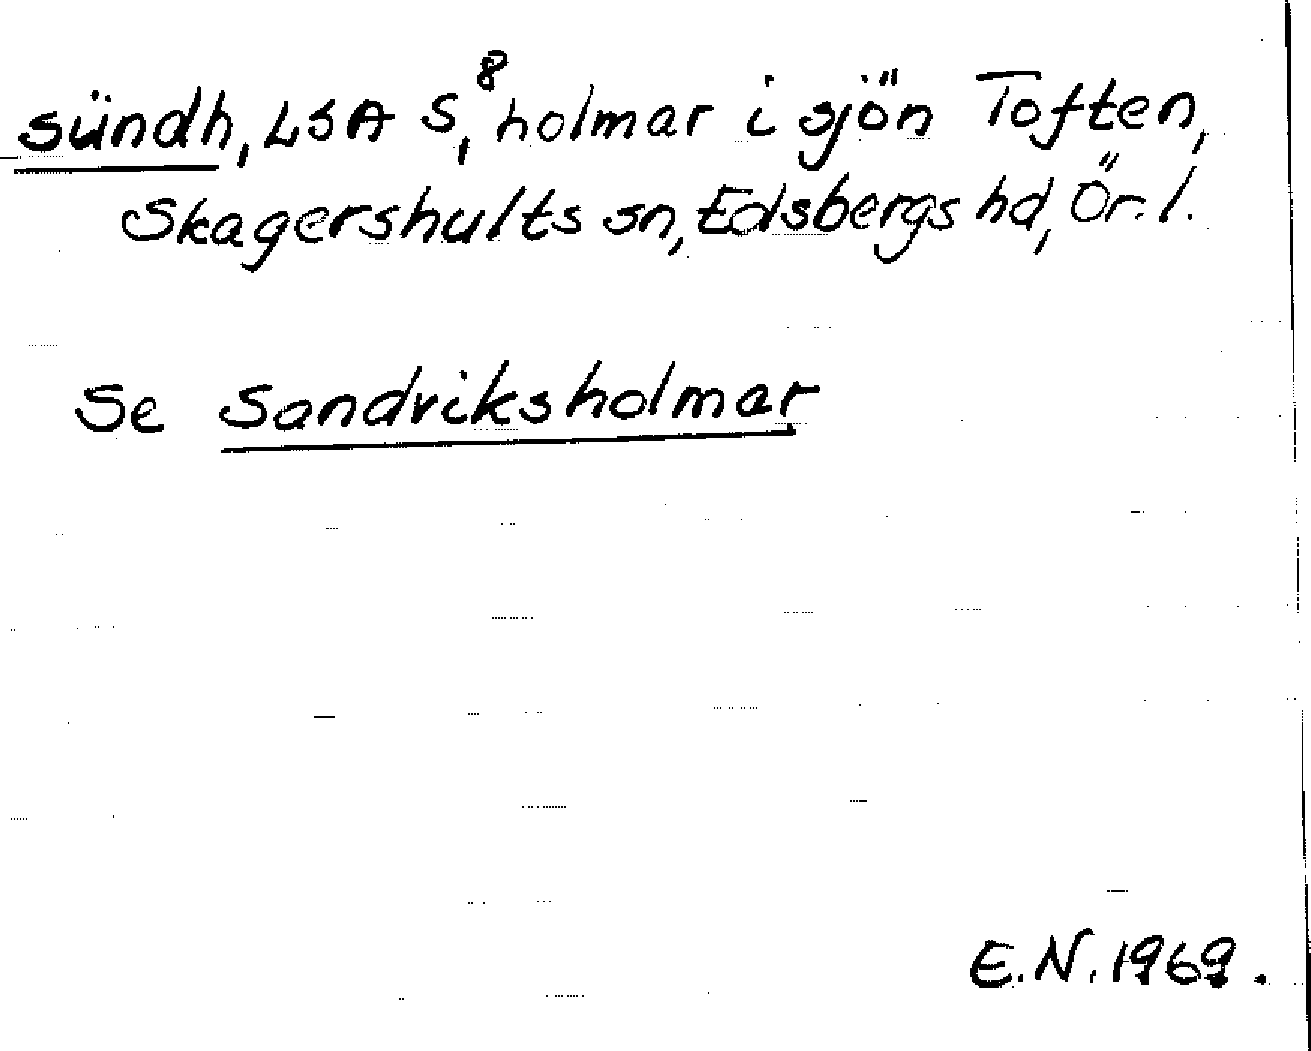 sündh, LSA S,⁸ holmar i sjön Toften,
Skagershults sn, Edsbergs hd, Ör. l.
Se Sandviksholmar
E.N. 1969.